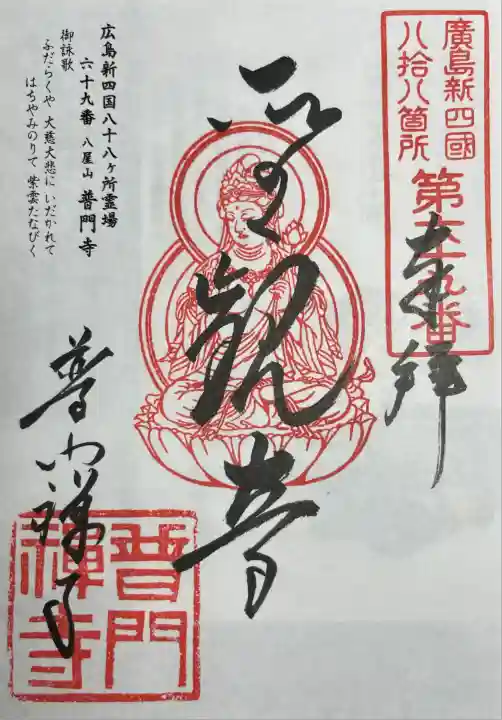 廣島新四國
八拾八箇所
第六十九番
奉拝
聖観音
広島新四国八十八ヶ所霊場
六十九番 八屋山 普門寺
御詠歌
ふだらくや 大慈大悲に いだかれて
はちやみのりて 紫雲たなびく
普門禅寺
普門
禪寺